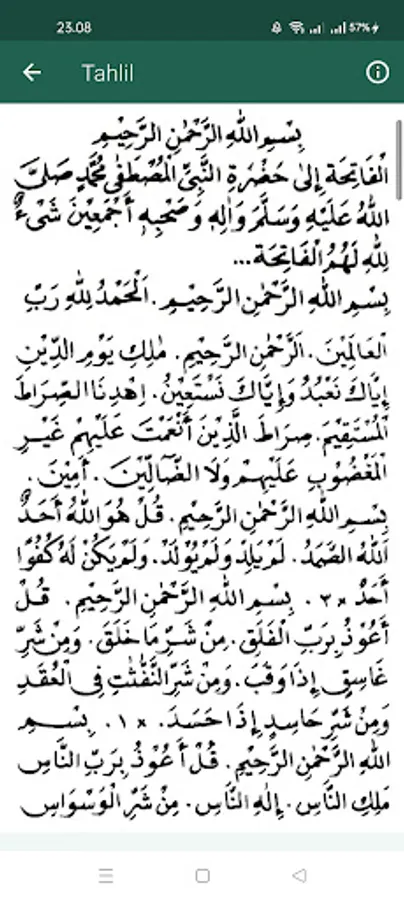 23.08
57%
Tahlil
بِسْمِ اللهِ الرَّحْمٰنِ الرَّحِيْمِ
اَلْفَاتِحَة إِلىٰ حَضْرَةِ النَّبِيِّ الْمُصْطَفٰى مُحَمَّدٍ صَلَّى
اللهُ عَلَيْهِ وَسَلَّمَ وَاٰلِهٖ وَصَحْبِهٖ أَجْمَعِيْنَ شَيْءٌ
لِلّٰهِ لَهُمُ الْفَاتِحَة...
بِسْمِ اللهِ الرَّحْمٰنِ الرَّحِيْمِ. اَلْحَمْدُ لِلّٰهِ رَبِّ
الْعَالَمِيْنَ. اَلرَّحْمٰنِ الرَّحِيْمِ. مٰلِكِ يَوْمِ الدِّيْنِ
إِيَّاكَ نَعْبُدُ وَإِيَّاكَ نَسْتَعِيْنُ. اِهْدِنَا الصِّرَاطَ
الْمُسْتَقِيْمَ. صِرَاطَ الَّذِيْنَ أَنْعَمْتَ عَلَيْهِمْ غَيْرِ
الْمَغْضُوْبِ عَلَيْهِمْ وَلَا الضَّالِّيْنَ. أٰمِيْنَ.
بِسْمِ اللهِ الرَّحْمٰنِ الرَّحِيْمِ. قُلْ هُوَ اللهُ أَحَدٌ
اَللهُ الصَّمَدُ. لَمْ يَلِدْ وَلَمْ يُوْلَدْ. وَلَمْ يَكُنْ لَهٗ كُفُوًا
أَحَدٌ ×٣. بِسْمِ اللهِ الرَّحْمٰنِ الرَّحِيْمِ. قُلْ
أَعُوْذُ بِرَبِّ الْفَلَقِ. مِنْ شَرِّ مَا خَلَقَ. وَمِنْ شَرِّ
غَاسِقٍ إِذَا وَقَبَ. وَمِنْ شَرِّ النَّفّٰثٰتِ فِى الْعُقَدِ
وَمِنْ شَرِّ حَاسِدٍ إِذَا حَسَدَ. ×١. بِسْمِ
اللهِ الرَّحْمٰنِ الرَّحِيْمِ. قُلْ أَعُوْذُ بِرَبِّ النَّاسِ
مَلِكِ النَّاسِ. إِلٰهِ النَّاسِ. مِنْ شَرِّ الْوَسْوَاسِ